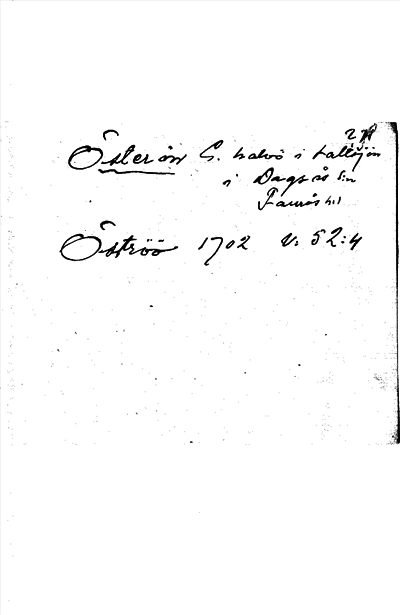 Österön G. halvö i Tallsjön
i Dagsås sn
Faurås hd
Öströö 1702 V: 52:4